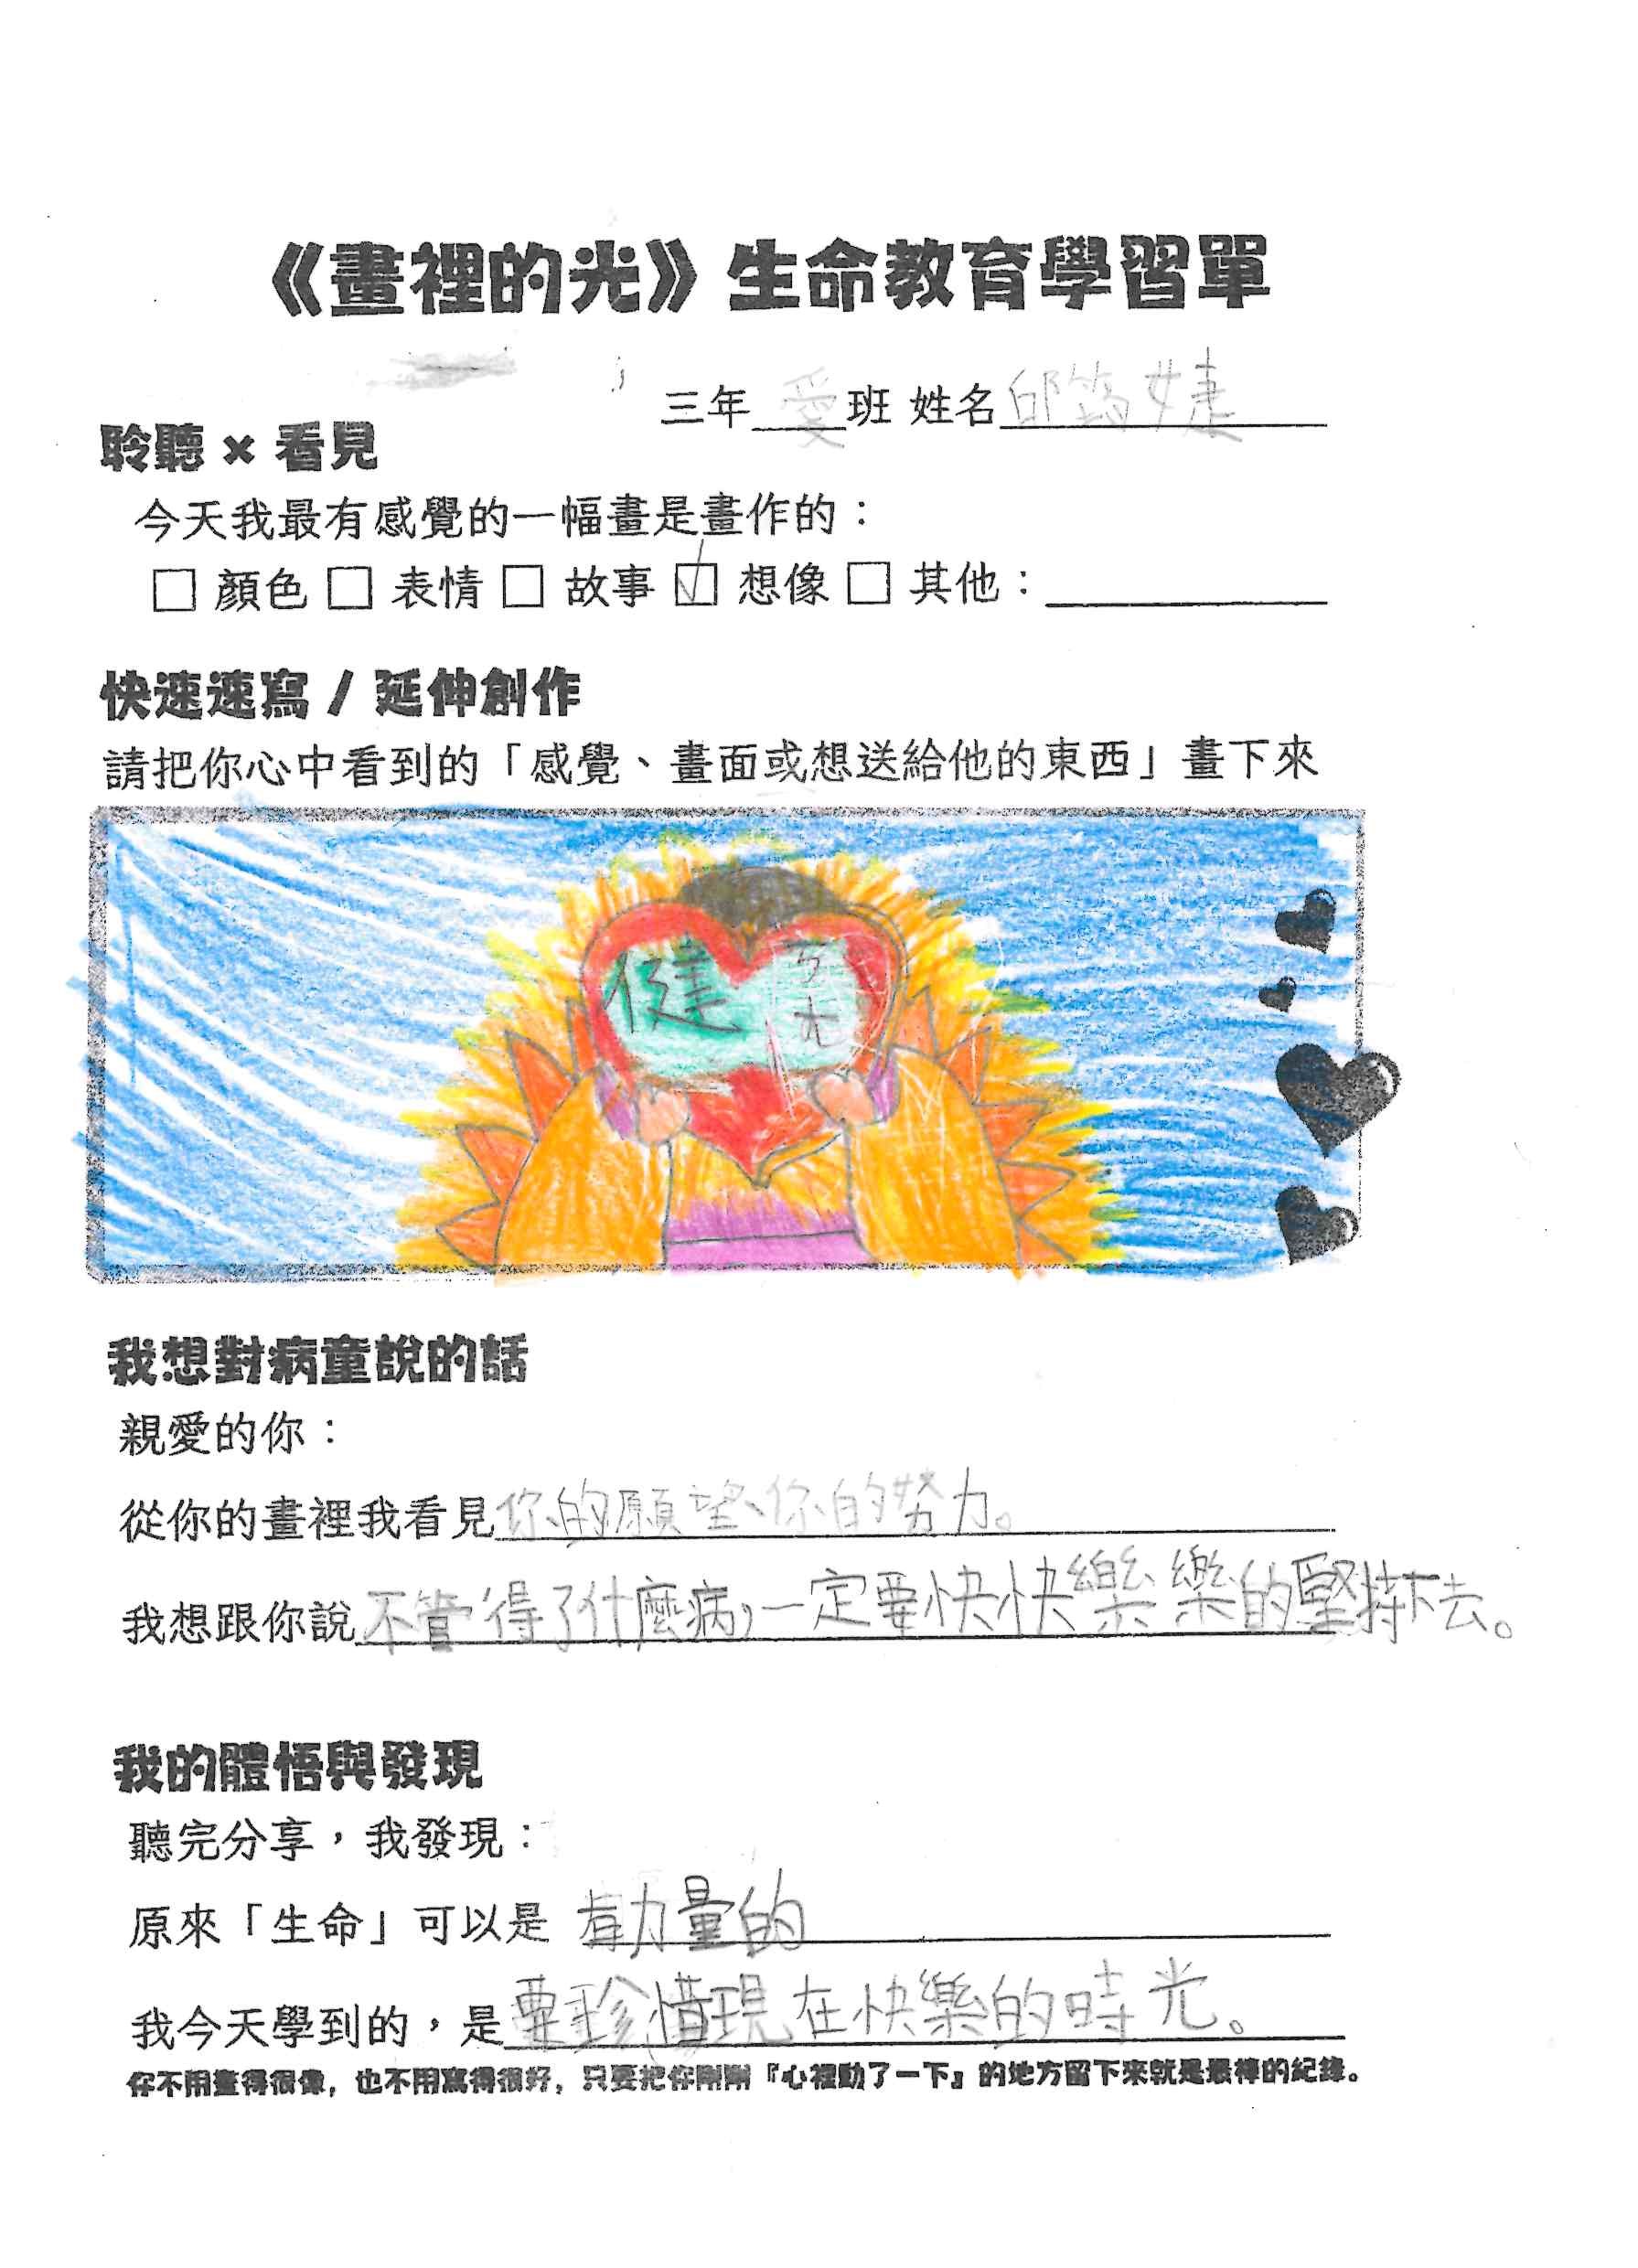 《畫裡的光》生命教育學習單
三年 愛 班 姓名 邱筠婕
聆聽 × 看見
今天我最有感覺的一幅畫是畫作的：
□ 顏色 □ 表情 □ 故事 ☑ 想像 □ 其他：
快速速寫 / 延伸創作
請把你心中看到的「感覺、畫面或想送給他的東西」畫下來
健 ㄎㄤ
我想對病童說的話
親愛的你：
從你的畫裡我看見你的願望、你的努力。
我想跟你說不管得了什麼病，一定要快快樂樂的堅持下去。
我的體悟與發現
聽完分享，我發現：
原來「生命」可以是 有力量的
我今天學到的，是要珍惜現在快樂的時光。
你不用畫得很像，也不用寫得很好，只要把你剛剛『心裡動了一下』的地方留下來就是最棒的紀錄。